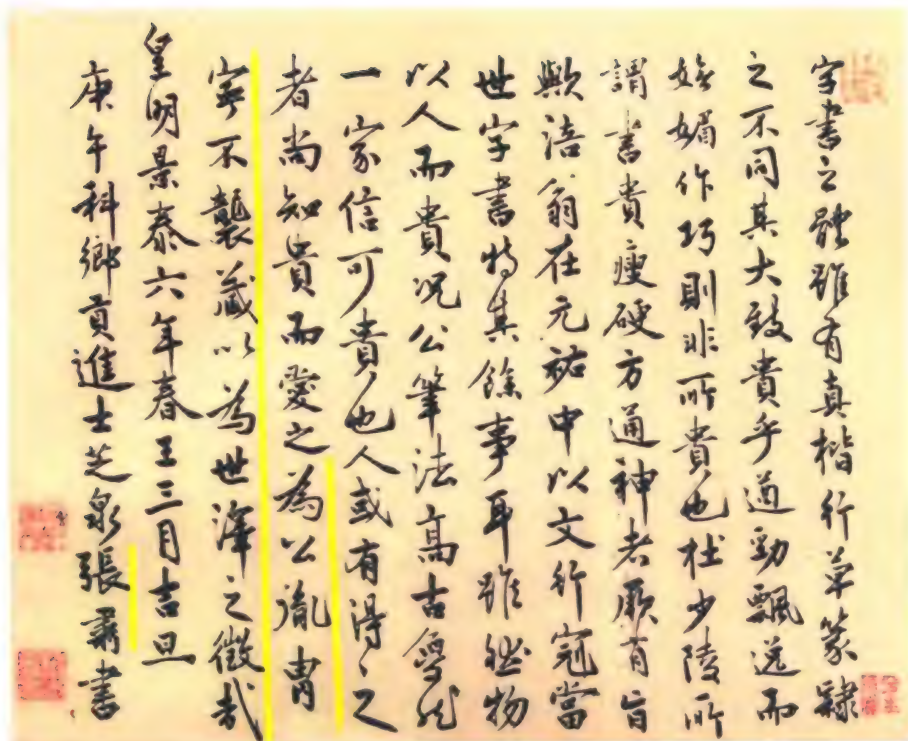 字書之體雖有真楷行草篆隸
之不同其大致貴乎遒勁飄逸而
嫵媚作巧則非所貴也杜少陵所
謂書貴瘦硬方通神者厥有旨
歟涪翁在元祐中以文行冠當
世字書特其餘事耳雖然物
以人而貴況公筆法高古夐然
一家信可貴也人或有得之
者尚知貴而愛之為公胤胄
寧不襲藏以為世澤之徵哉
皇明景泰六年春王三月吉旦
庚午科鄉貢進士芝泉張肅書